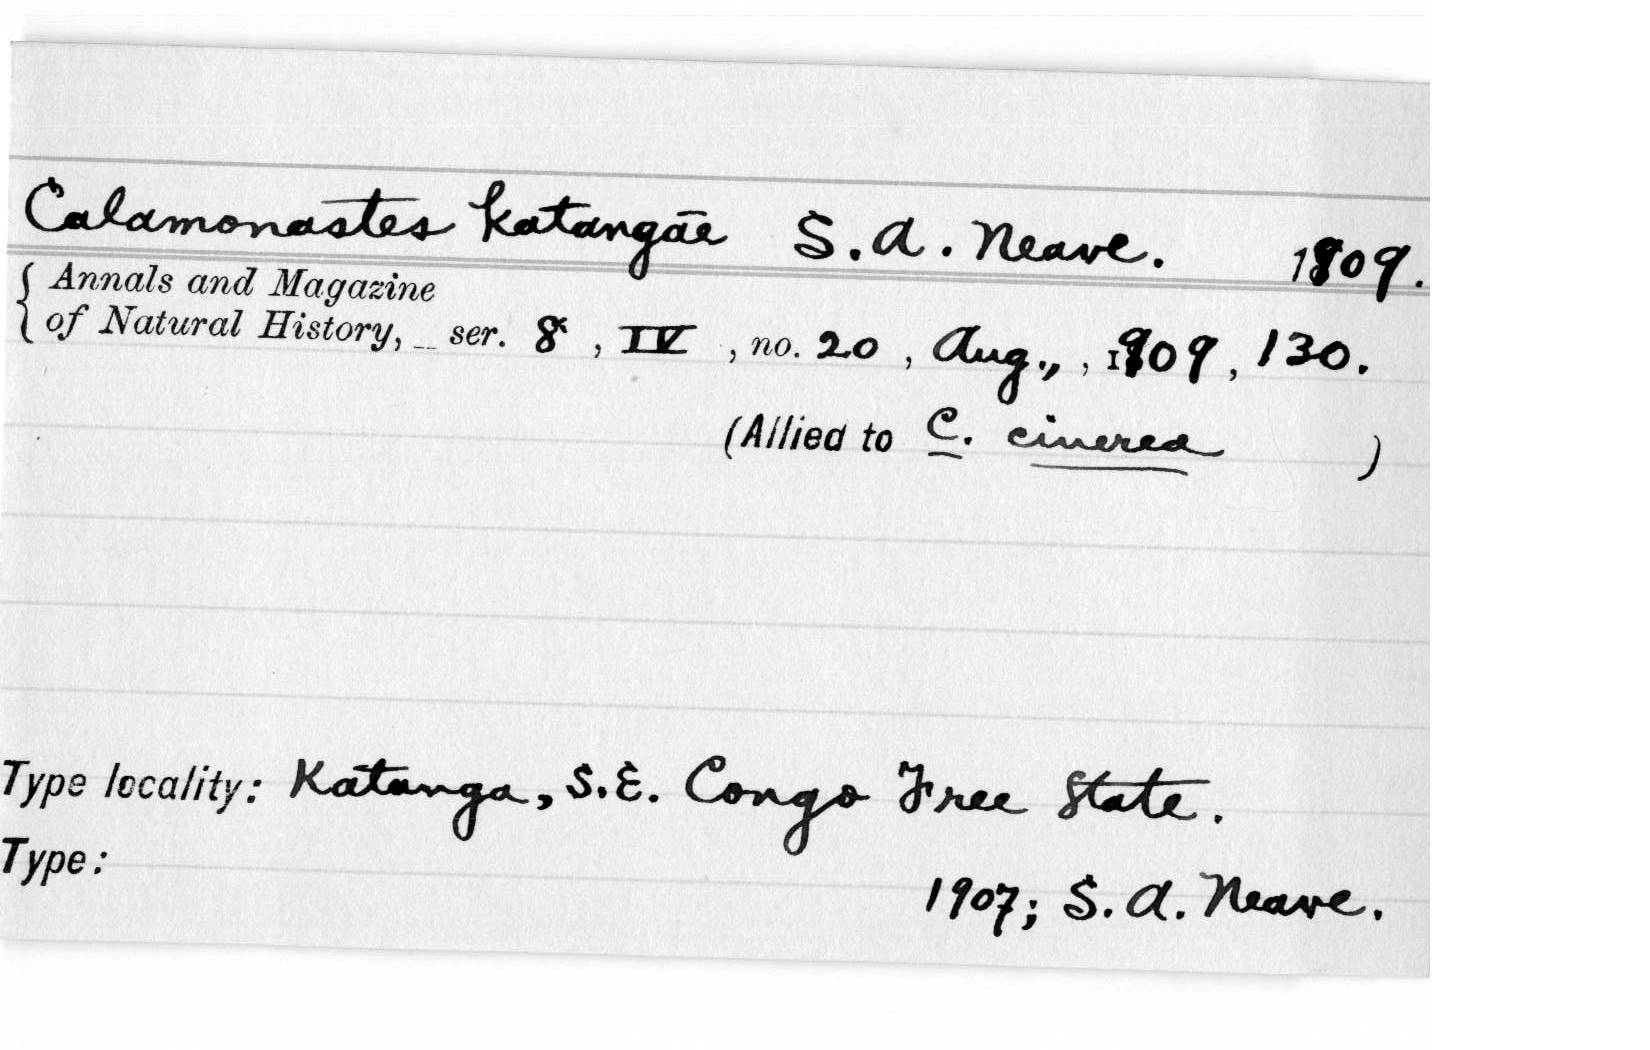 Calamonastes katangae S. A. Neave. 1909.
{ Annals and Magazine
of Natural History, _ ser. 8, IV, no. 20, Aug., , 1909, 130.
(Allied to C. cinerea )
Type locality: Katanga, S.E. Congo Free State.
Type:
1907; S. A. Neave.